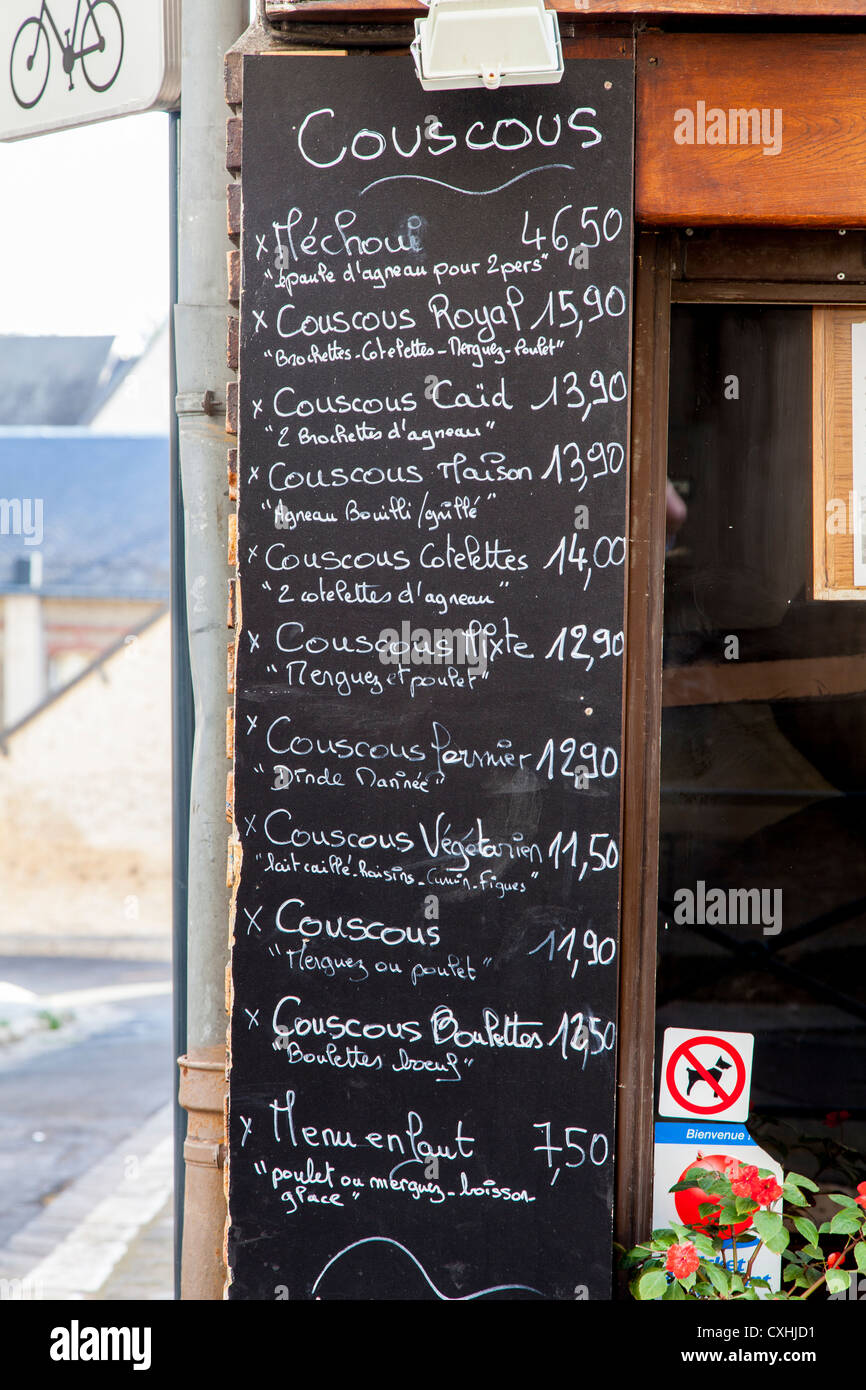 Couscous
x Méchoui 46,50
"épaule d'agneau pour 2 pers"
x Couscous Royal 15,90
"Brochettes-Cotelettes-Merguez-Poulet"
x Couscous Caïd 13,90
"2 Brochettes d'agneau"
x Couscous Maison 13,90
"Agneau Bouilli/grillé"
x Couscous Cotelettes 14,00
"2 cotelettes d'agneau"
x Couscous Mixte 12,90
"Merguez et poulet"
x Couscous fermier 12,90
"Dinde Marinée"
x Couscous Végétarien 11,50
"lait caillé-Raisins-Cumin-figues"
x Couscous 11,90
"Merguez ou poulet"
x Couscous Boulettes 12,50
"Boulettes boeuf"
x Menu enfant 7,50
"poulet ou merguez-boisson-
glace"
Bienvenue
a alamy stock photo
alamy
Image ID: CXHJD1
www.alamy.com